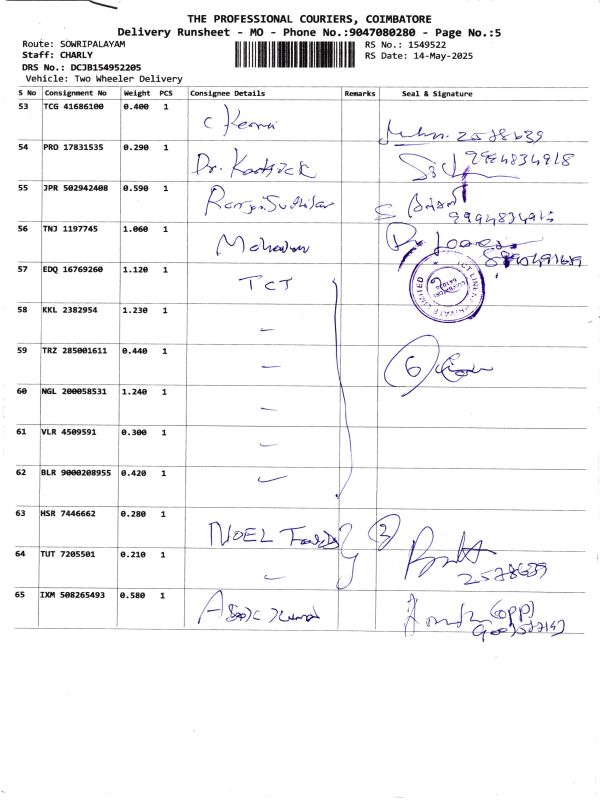 THE PROFESSIONAL COURIERS, COIMBATORE
Delivery Runsheet - MO - Phone No.:9047080280 - Page No.:5
Route: SOWRIPALAYAM RS No.: 1549522
Staff: CHARLY RS Date: 14-May-2025
DRS No.: DCJB154952205
Vehicle: Two Wheeler Delivery
S No Consignment No Weight PCS Consignee Details Remarks Seal & Signature
53 TCG 41686100 0.400 1 2578639
54 PRO 17831535 0.290 1 Dr. Karthick 9994834918
55 JPR 502942408 0.590 1
56 TNJ 1197745 1.060 1
57 EDQ 16769260 1.120 1 TCT
58 KKL 2382954 1.230 1
59 TRZ 285001611 0.440 1 6
60 NGL 200058531 1.240 1
61 VLR 4509591 0.300 1
62 BLR 9000208955 0.420 1
63 HSR 7446662 0.280 1 NOEL 2
64 TUT 7205501 0.210 1 2578639
65 IXM 508265493 0.580 1 (opp)